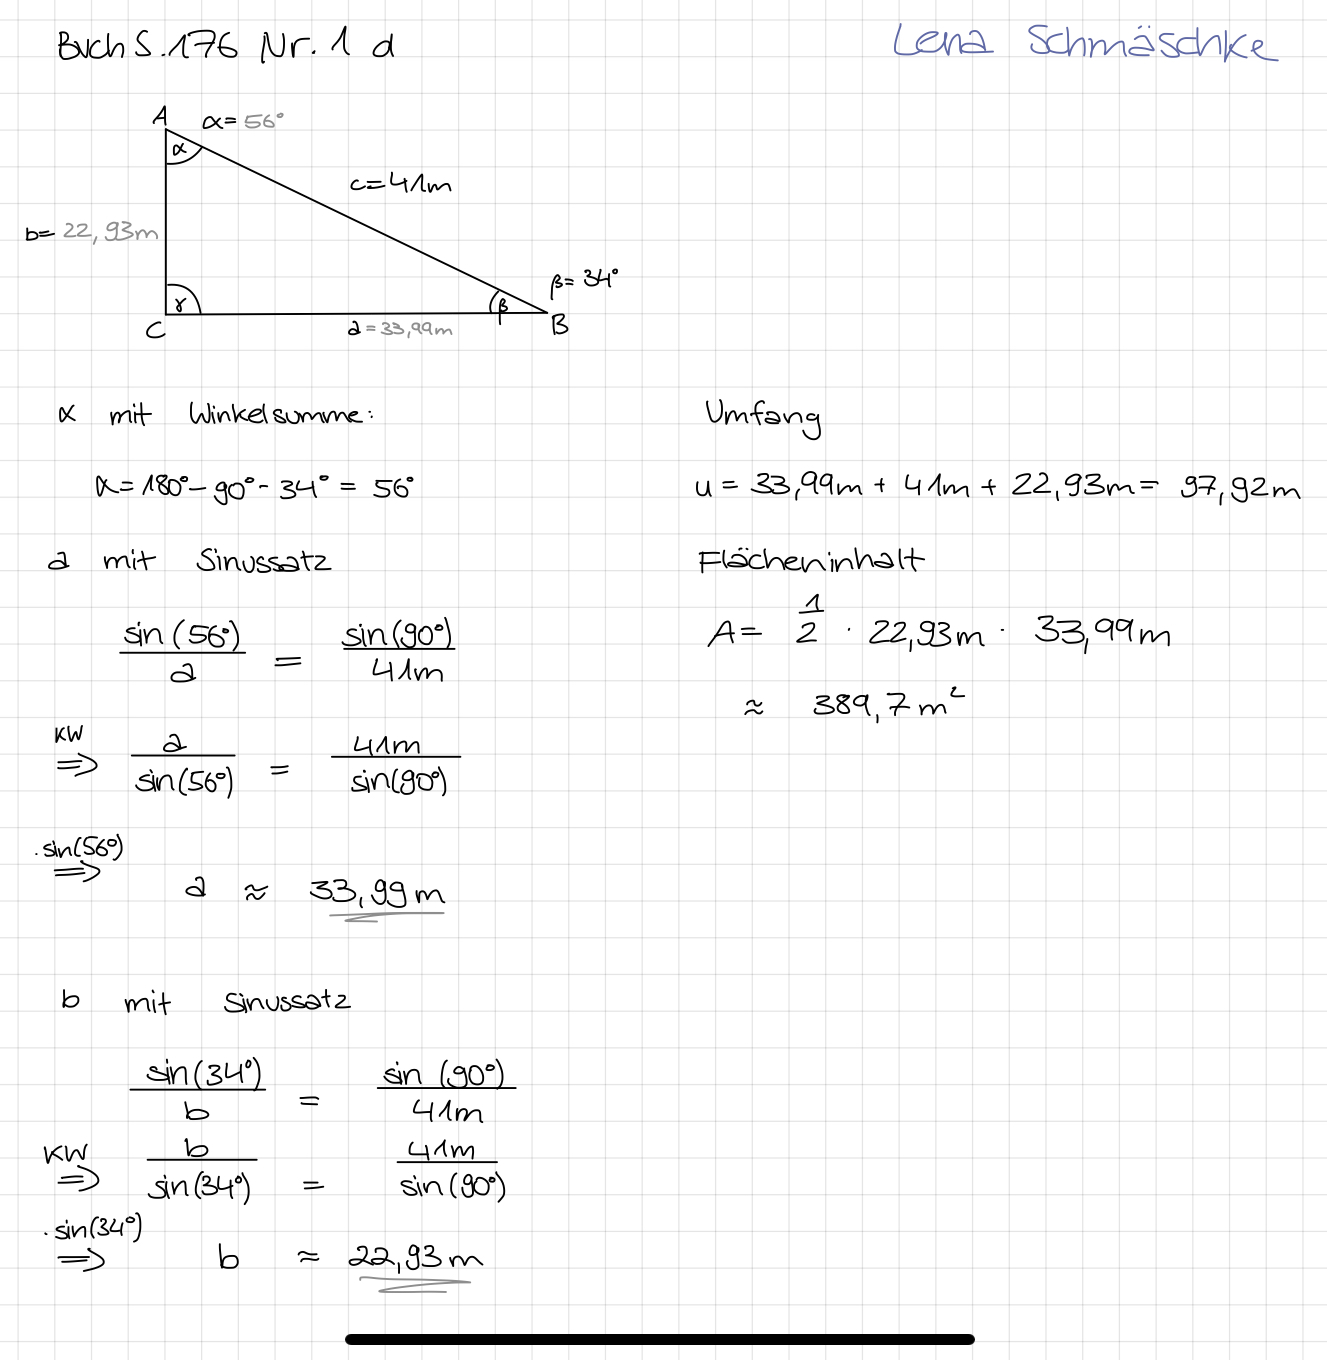 Buch S. 176 Nr. 1 d
Lena Schmäschke
A
α = 56°
α
c = 41m
b = 22,93m
β = 34°
γ
β
C
a = 33,99m
B
α mit Winkelsumme:
α = 180° - 90° - 34° = 56°
a mit Sinussatz
sin(56°)/a = sin(90°)/41m
KW
⇒ a/sin(56°) = 41m/sin(90°)
· sin(56°)
⇒ a ≈ 33,99m
b mit Sinussatz
sin(34°)/b = sin(90°)/41m
KW
⇒ b/sin(34°) = 41m/sin(90°)
· sin(34°)
⇒ b ≈ 22,93m
Umfang
u = 33,99m + 41m + 22,93m = 97,92m
Flächeninhalt
A = 1/2 · 22,93m · 33,99m
≈ 389,7m²